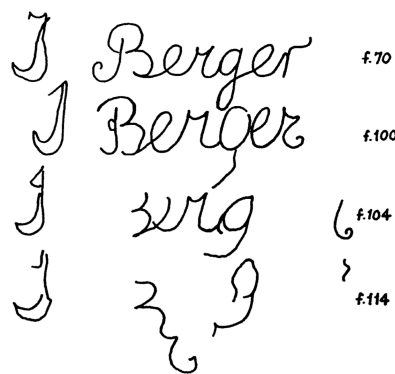 J Berger f.70
J Berger f.100
J f.104
J f.114